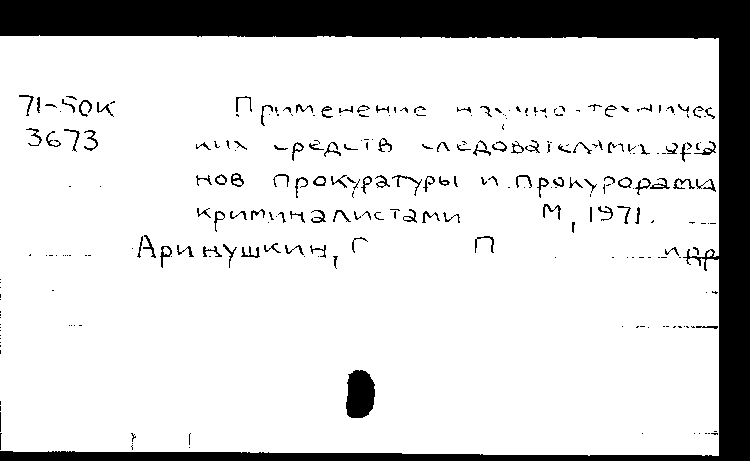 71-50к Применение научно-техничес
3673 ких средств следователями орга
нов прокуратуры и прокурорами
криминалистами М, 1971.
Аринушкин, Г П и др